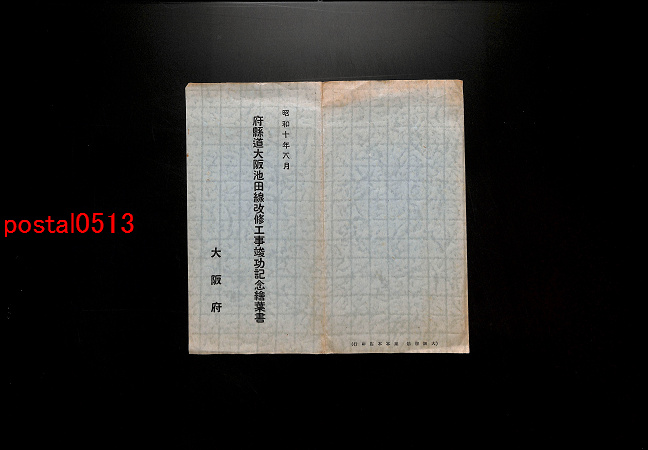 昭和十年六月
府縣道大阪池田線改修工事竣功記念繪葉書
大阪府
postal0513